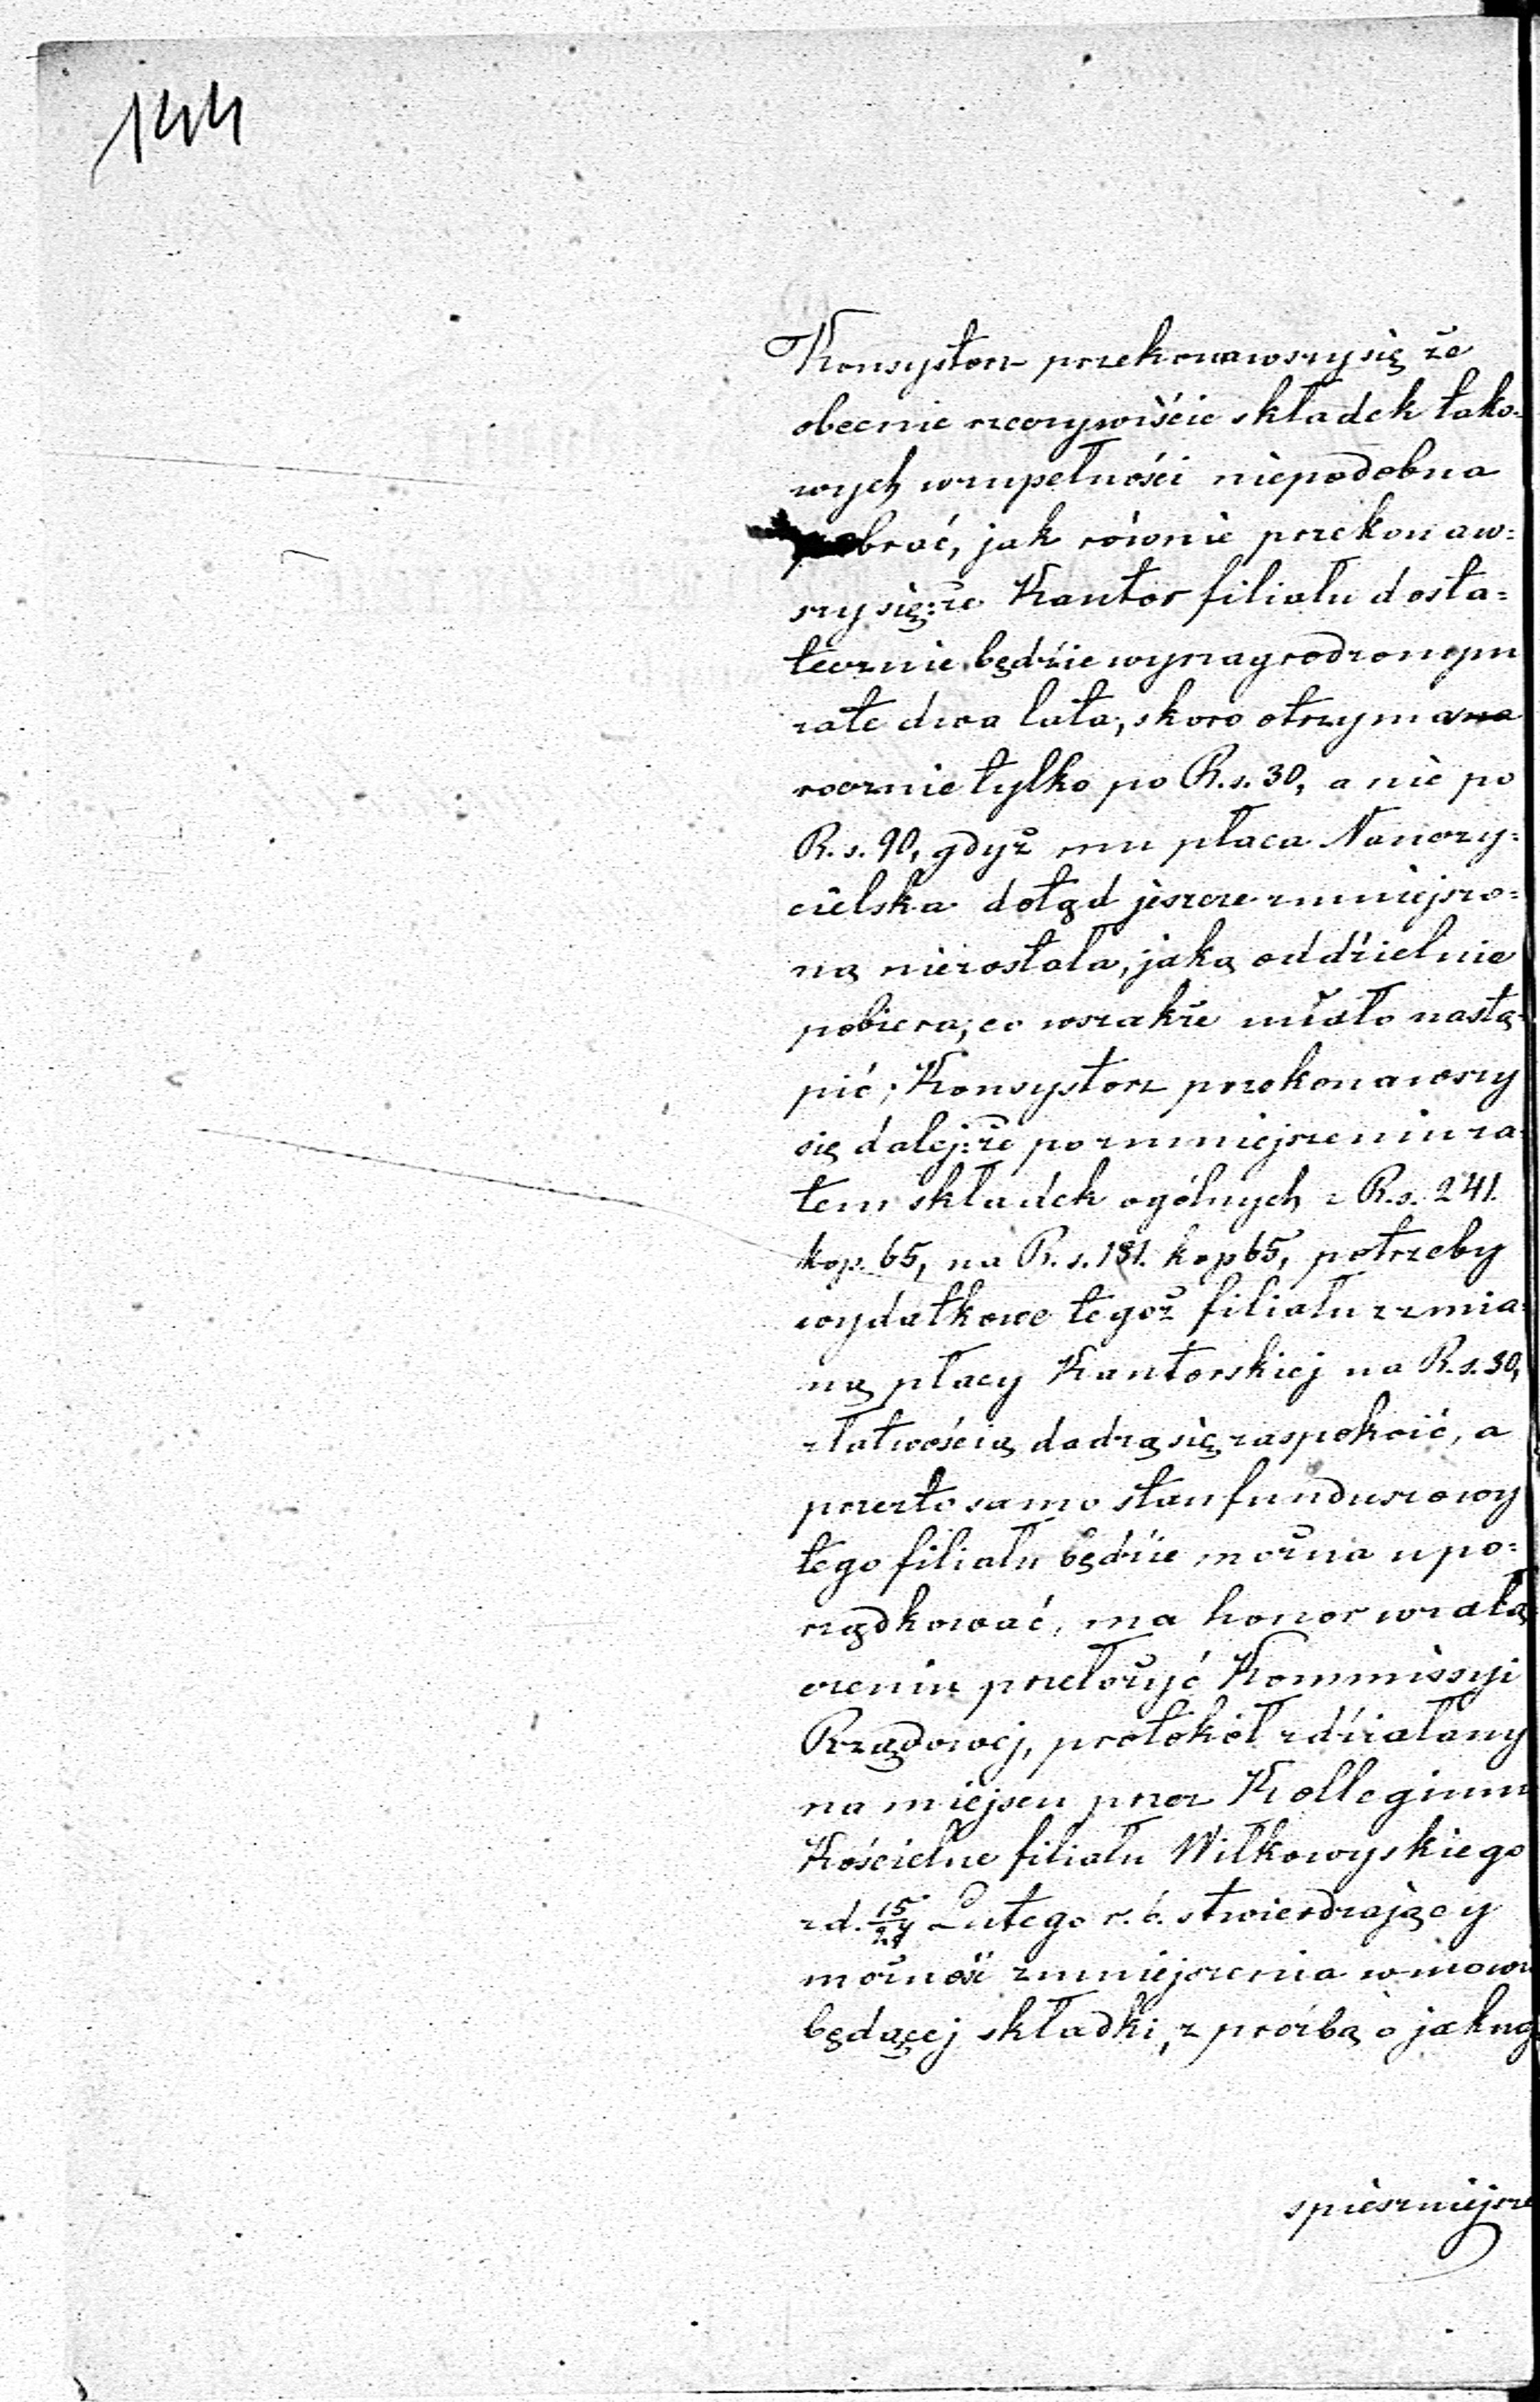 144
Konsystorz przekonawszy się że
obecnie rzeczywiście składek tako-
wych w zupełności niepodobna
brać, jak równie przekonaw=
szy się: że Kantor filiału dosta=
tecznie będzie wynagrodzonym
za te dwa lata, skoro otrzyma
rocznie tylko po R.s. 30, a nie po
R.s. 90, gdyż mu płaca Nauczy=
cielska dotąd jeszcze zmniejszo=
ną niezostała, jaką oddzielnie
pobiera; co wszakże miało nastą-
pić; Konsystorz przekonawszy
się dalej: że po zmniejszeniu za-
tem składek ogólnych z R.s. 241.
kop. 65, na R.s. 181. kop 65, potrzeby
wydatkowe tegoż filiału z zmia-
ną płacy Kantorskiej na R.s. 30,
z łatwością dadzą się zaspokoić, a
przez to samo stan funduszowy
tego filiału będzie można upo=
rządkować, ma honor w załą
czeniu przełożyć Kommissyi
Rządowej, protokół zdziałany
na miejscu przez Kollegium
Kościelne filiału Wiłkowyskiego
z d. 15/27 Lutego r. b. stwierdzający
możność zmniejszenia w mowie
będącej składki, z prośbą o jak naj
spieszniejsze